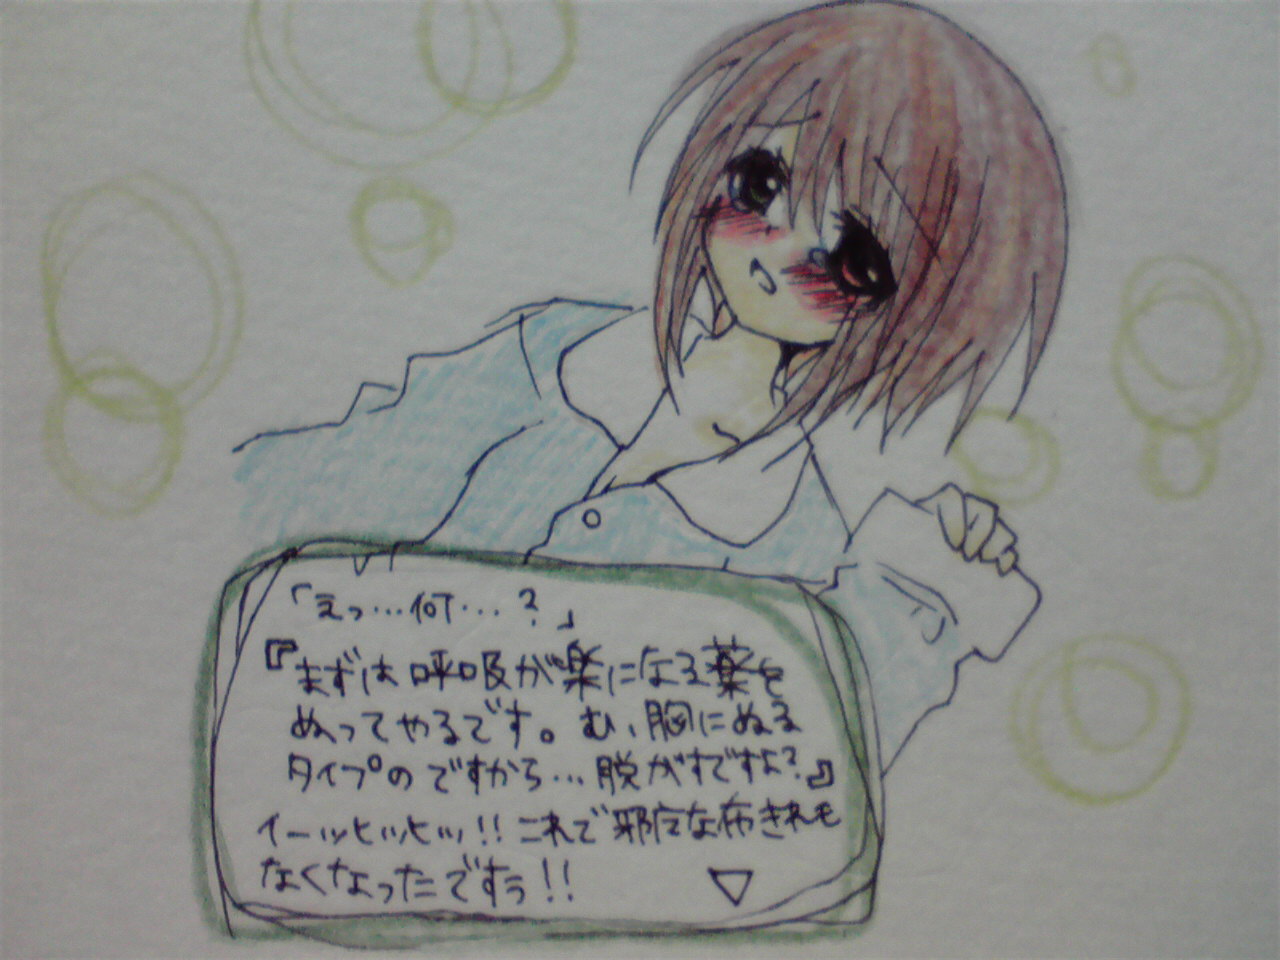 「えっ…何…？」
『まずは呼吸が楽になる薬を
ぬってやるです。む、胸にぬる
タイプのですから…脱がすですよ？』
イーッヒッヒッ!!これで邪广な布きれも
なくなったですぅ!!
▽